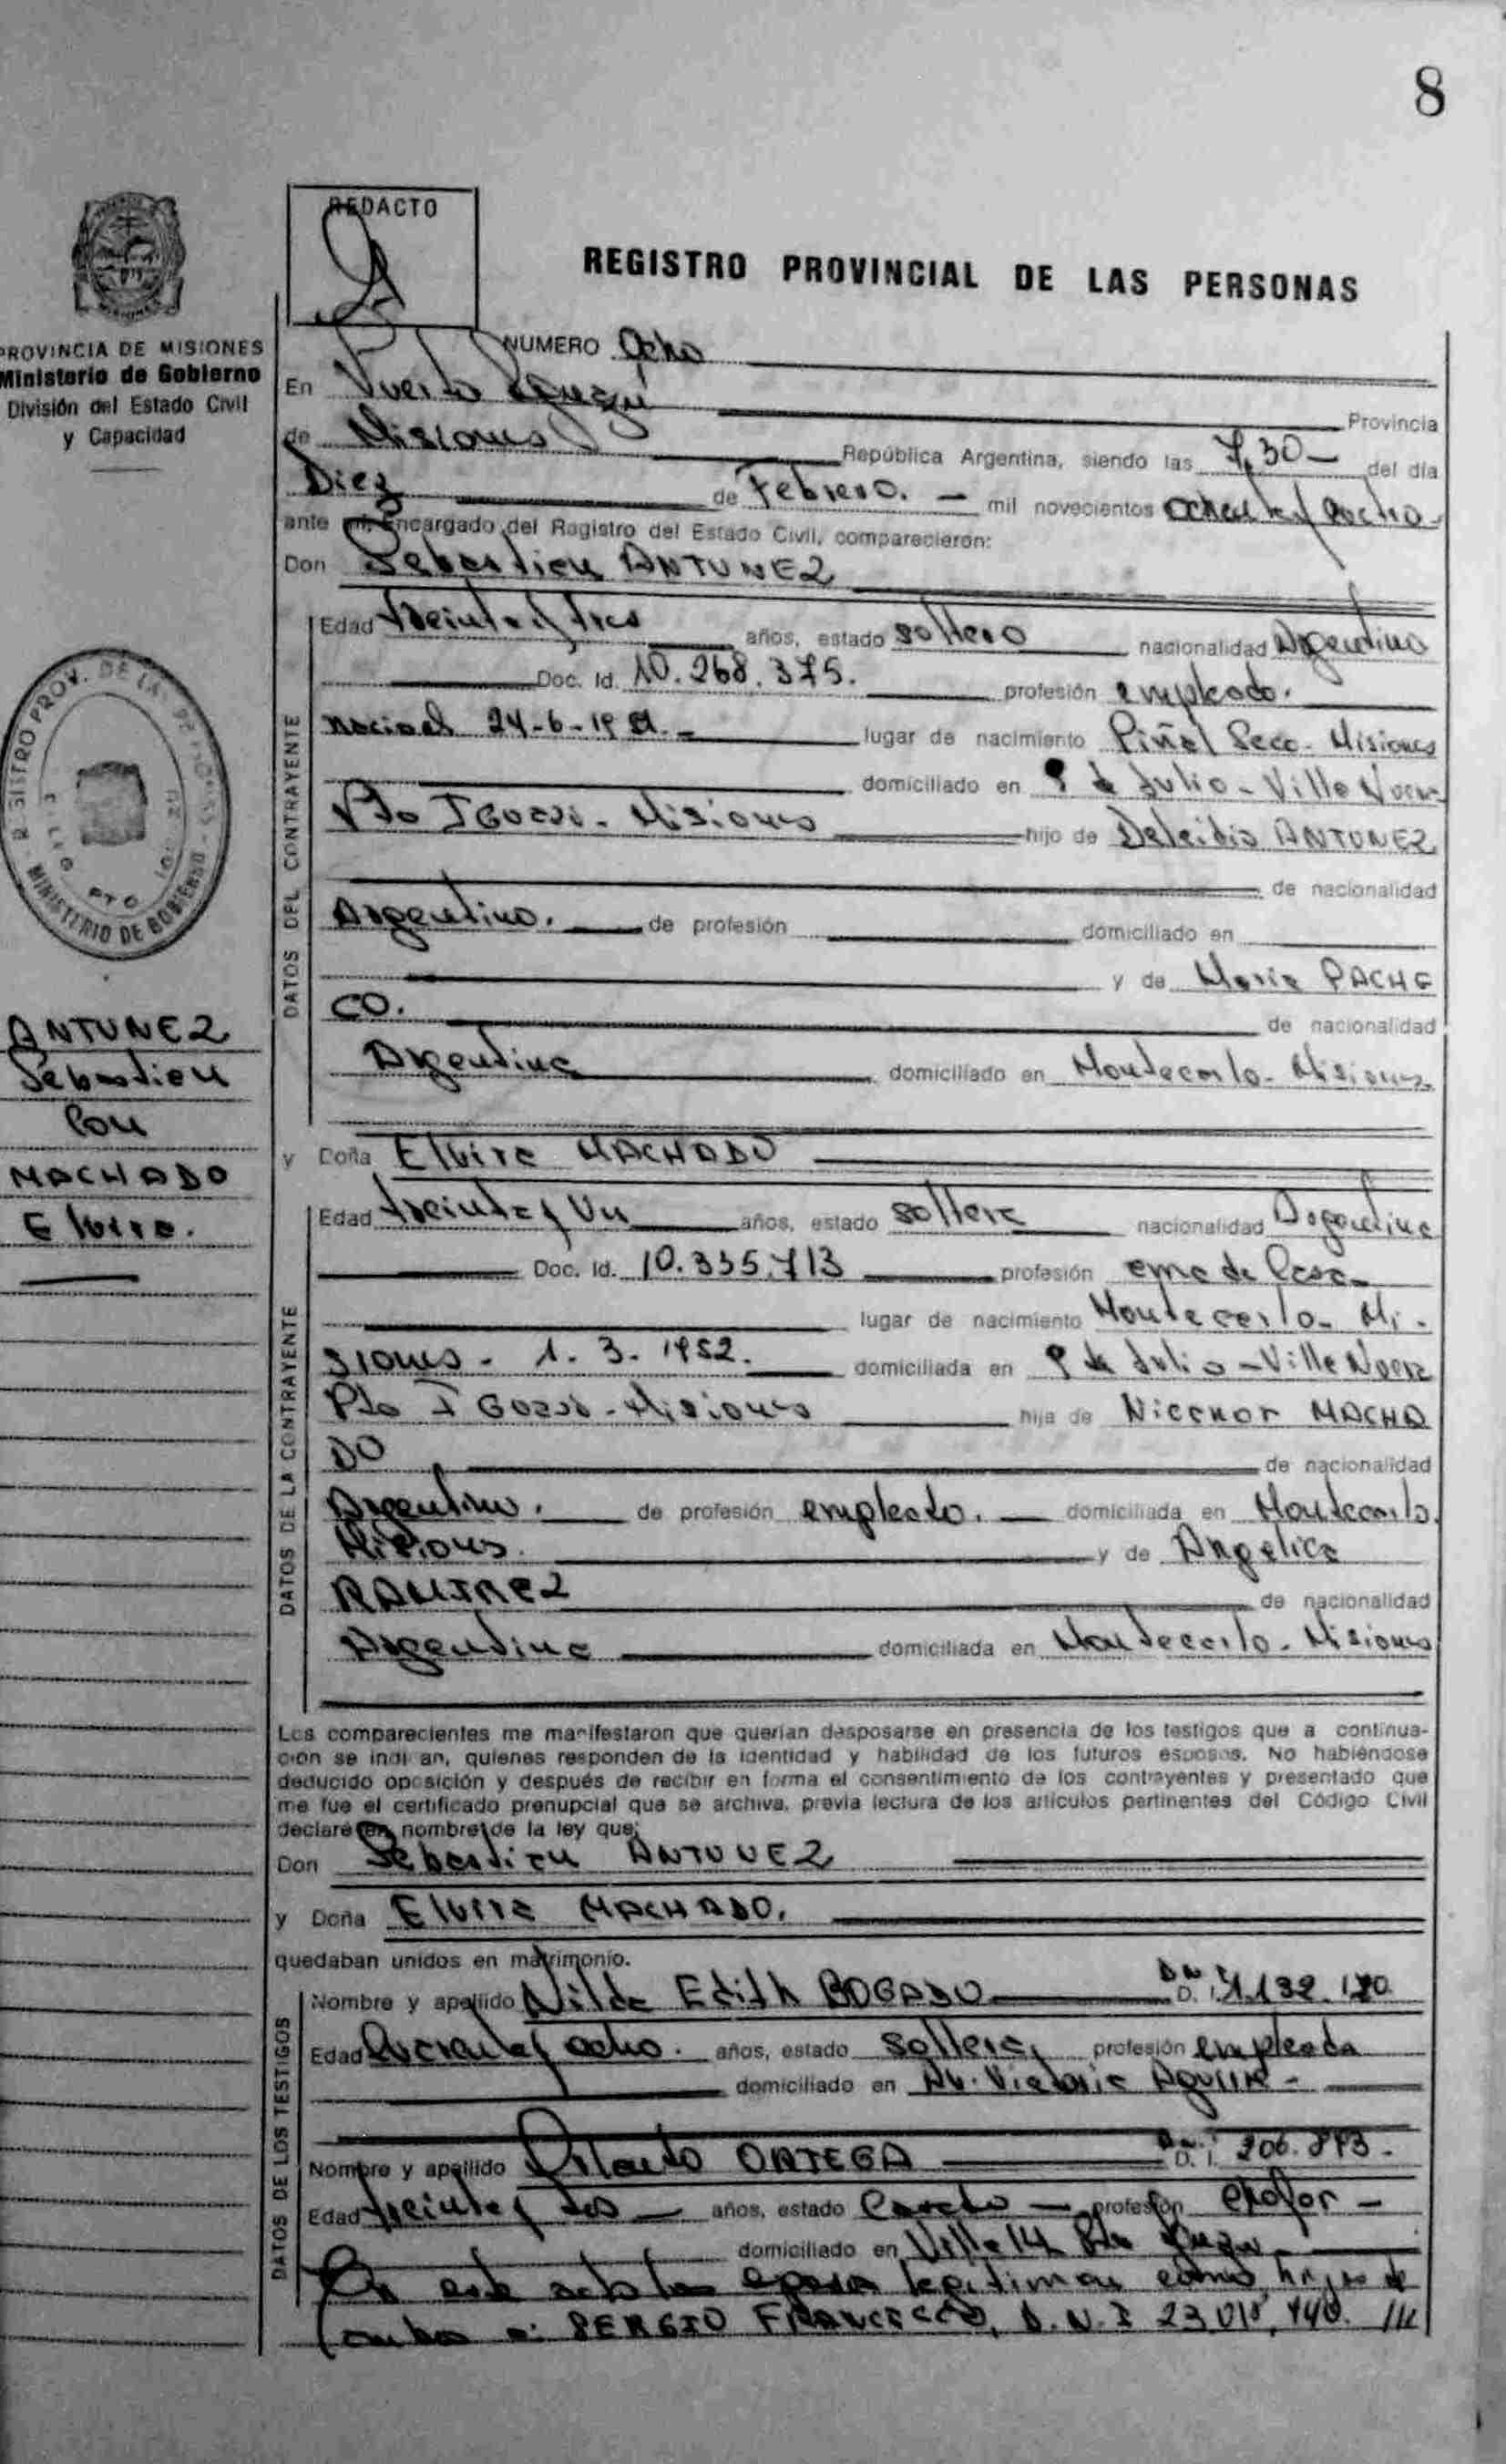 8
REDACTO
REGISTRO PROVINCIAL DE LAS PERSONAS
PROVINCIA DE MISIONES
Ministerio de Gobierno
División del Estado Civil
y Capacidad
NUMERO Ocho
En Puerto Iguazú
Provincia
de Misiones República Argentina, siendo las 7,30 del día
Diez de Febrero. mil novecientos ochenta y ocho
ante mí, Encargado del Registro del Estado Civil, comparecieron:
Don Sebastian ANTUNEZ
Edad treinta y tres años, estado soltero nacionalidad Argentino
Doc. Id. 10.268.375. profesión empleado.
nacido el 24-6-19 lugar de nacimiento Piñal Seco - Misiones
domiciliado en 9 de Julio - Villa Nueva
Pto IGuazú - Misiones hijo de ANTUNEZ
de nacionalidad
Argentino. de profesión domiciliado en
y de Maria PACHE
CO. de nacionalidad
Argentina domiciliado en Montecarlo - Misiones.
DATOS DEL CONTRAYENTE
REGISTRO PROV. DE LAS PERSONAS - MINISTERIO DE GOBIERNO
ANTUNEZ
Sebastian
Con
MACHADO
Elvira.
y Doña Elvira MACHADO
Edad treinta y Un años, estado soltera nacionalidad Argentina
Doc. Id. 10.335.713 profesión ama de Casa
lugar de nacimiento Montecarlo - Mi-
siones - 1. 3. 1952. domiciliada en 9 de Julio - Villa Nueva
Pto IGuazú - Misiones hija de Nicanor MACHA
DO de nacionalidad
Argentino. de profesión empleado. domiciliada en Montecarlo.
Misiones. y de Angelica
RAMIREZ de nacionalidad
Argentina domiciliada en Montecarlo - Misiones
DATOS DE LA CONTRAYENTE
Los comparecientes me manifestaron que querían desposarse en presencia de los testigos que a continua-
ción se indi an, quienes responden de la identidad y habilidad de los futuros esposos. No habiéndose
deducido oposición y después de recibir en forma el consentimiento de los contrayentes y presentado que
me fue el certificado prenupcial que se archiva, previa lectura de los artículos pertinentes del Código Civil
declaré en nombre de la ley que:
Don Sebastian ANTUNEZ
y Doña Elvira MACHADO.
quedaban unidos en matrimonio.
Nombre y apellido Nilda Edith BOGADO D. I.
Edad cuarenta y ocho. años, estado soltera, profesión empleada
domiciliado en Av. Victoria Aguirre -
Nombre y apellido Orlando ORTEGA D. I.
Edad treinta y dos años, estado Casado profesión chofer -
domiciliado en Villa 14 Pto Iguazú
En este acto los esposos legitiman como hijos de
ambos a: SERGIO FRANCISCO, D.N.I 23.018.440. ///
DATOS DE LOS TESTIGOS